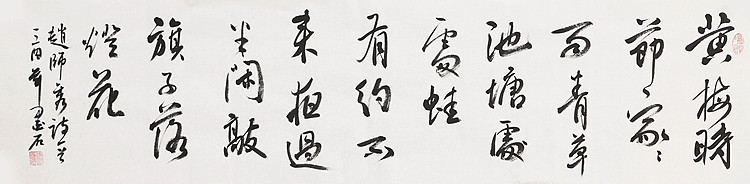 黄梅時
節家〻
雨青草
池塘處
處蛙
有約不
来夜過
半閑敲
旗子落
燈花
趙師秀詩一首